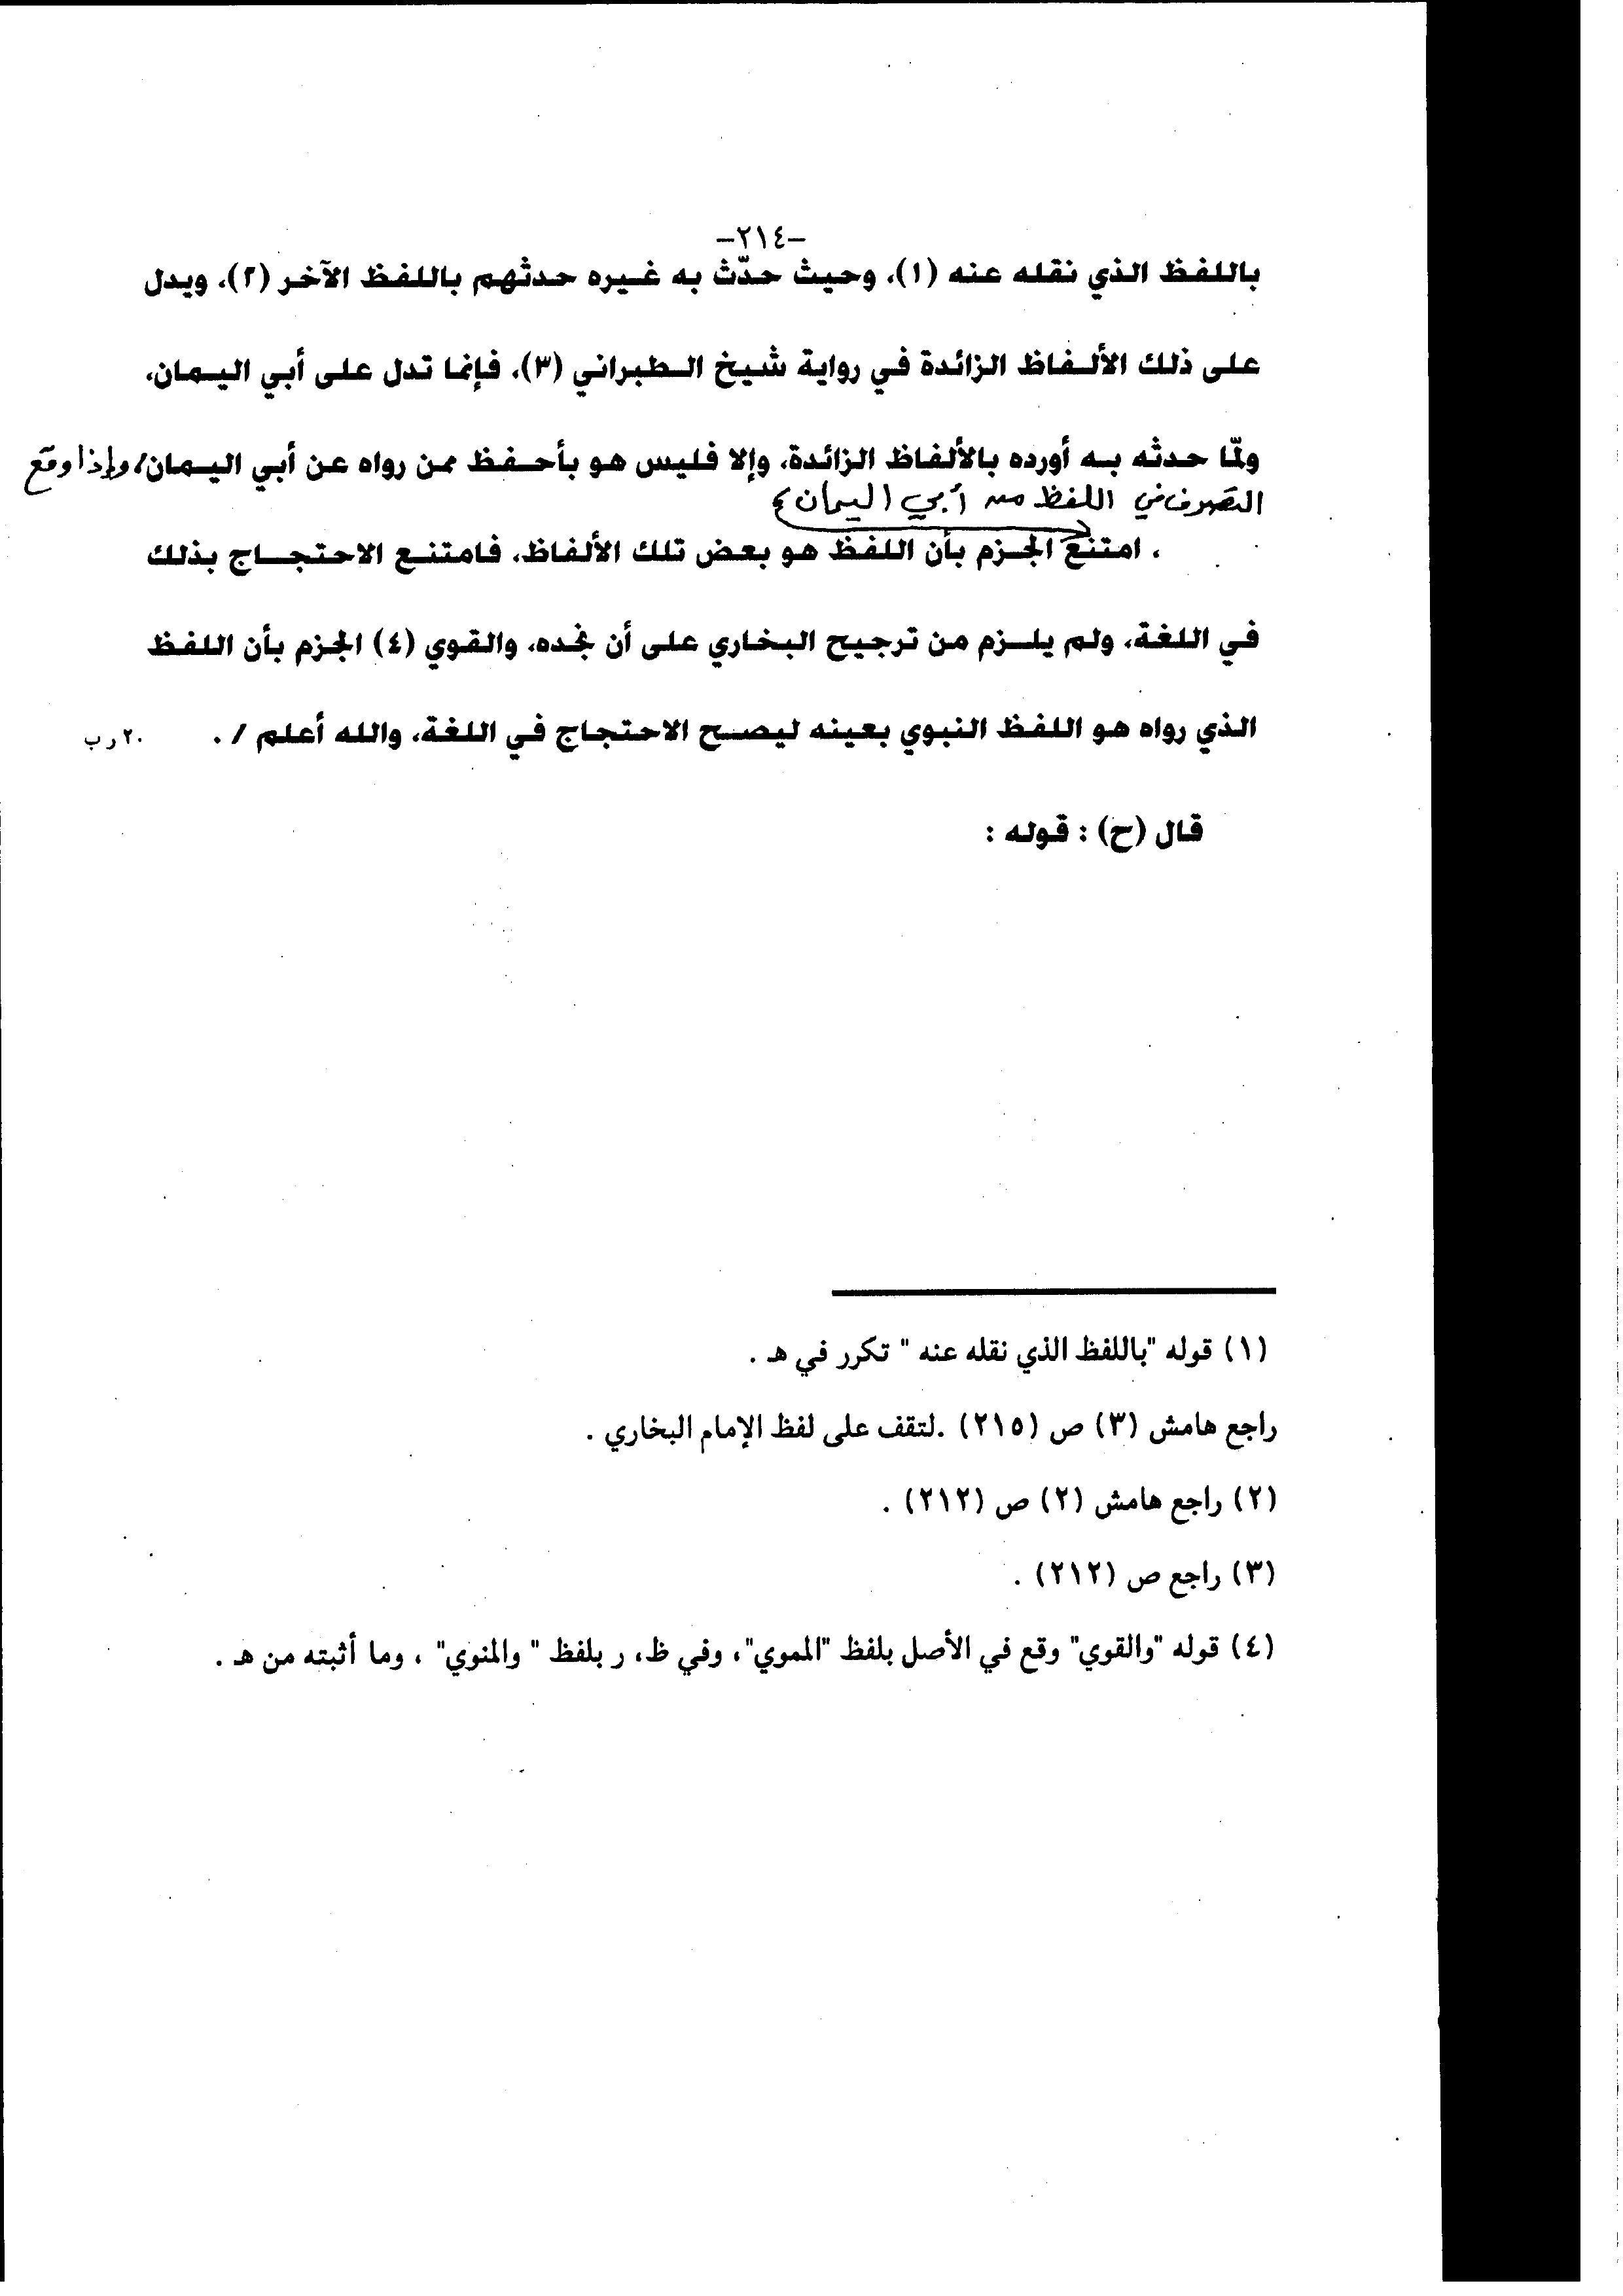 -٢١٤-
باللفظ الذي نقله عنه (١)، وحيث حدّث به غيره حدثهم باللفظ الآخر (٢)، ويدل
على ذلك الألفاظ الزائدة في رواية شيخ الطبراني (٣)، فإنما تدل على أبي اليمان،
ولمّا حدثه به أورده بالألفاظ الزائدة، وإلا فليس هو بأحفظ ممن رواه عن أبي اليمان/ وإذا وقع
التصرف في اللفظ من أبي اليمان
. امتنع الجزم بأن اللفظ هو بعض تلك الألفاظ، فامتنع الاحتجاج بذلك
في اللغة، ولم يلزم من ترجيح البخاري على أن نجده، والقوي (٤) الجزم بأن اللفظ
الذي رواه هو اللفظ النبوي بعينه ليصح الاحتجاج في اللغة، والله أعلم / . ٢٠ر ب
قال (ح) : قوله :
(١) قوله "باللفظ الذي نقله عنه " تكرر في هـ .
راجع هامش (٣) ص (٢١٥) .لتقف على لفظ الإمام البخاري .
(٢) راجع هامش (٢) ص (٢١٢) .
(٣) راجع ص (٢١٢) .
(٤) قوله "والقوي" وقع في الأصل بلفظ "المموي"، وفي ظ، ر بلفظ " والمنوي" ، وما أثبته من هـ .